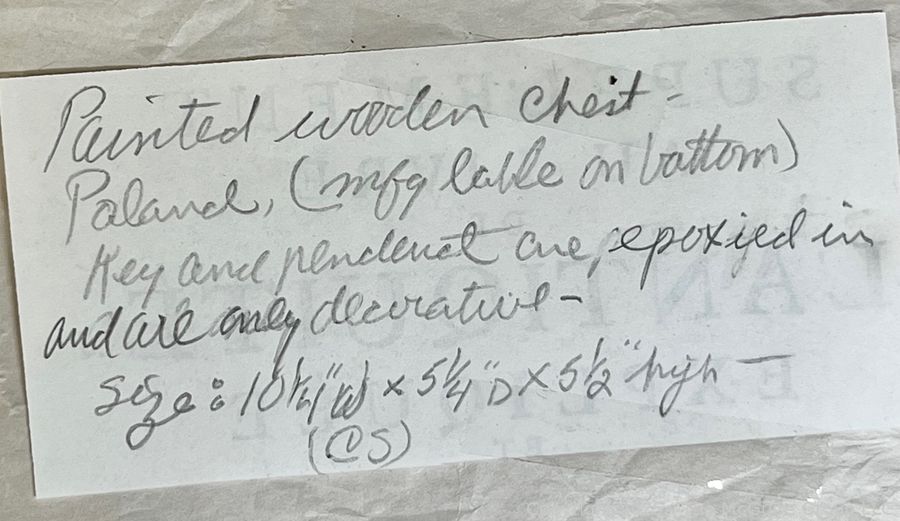 Painted wooden chest -
Poland, (mfg lable on bottom)
Key and pendenat are, epoxied in
and are only decorative -
size: 10 1/4" W x 5 1/4" D x 5 1/2" high —
(CS)